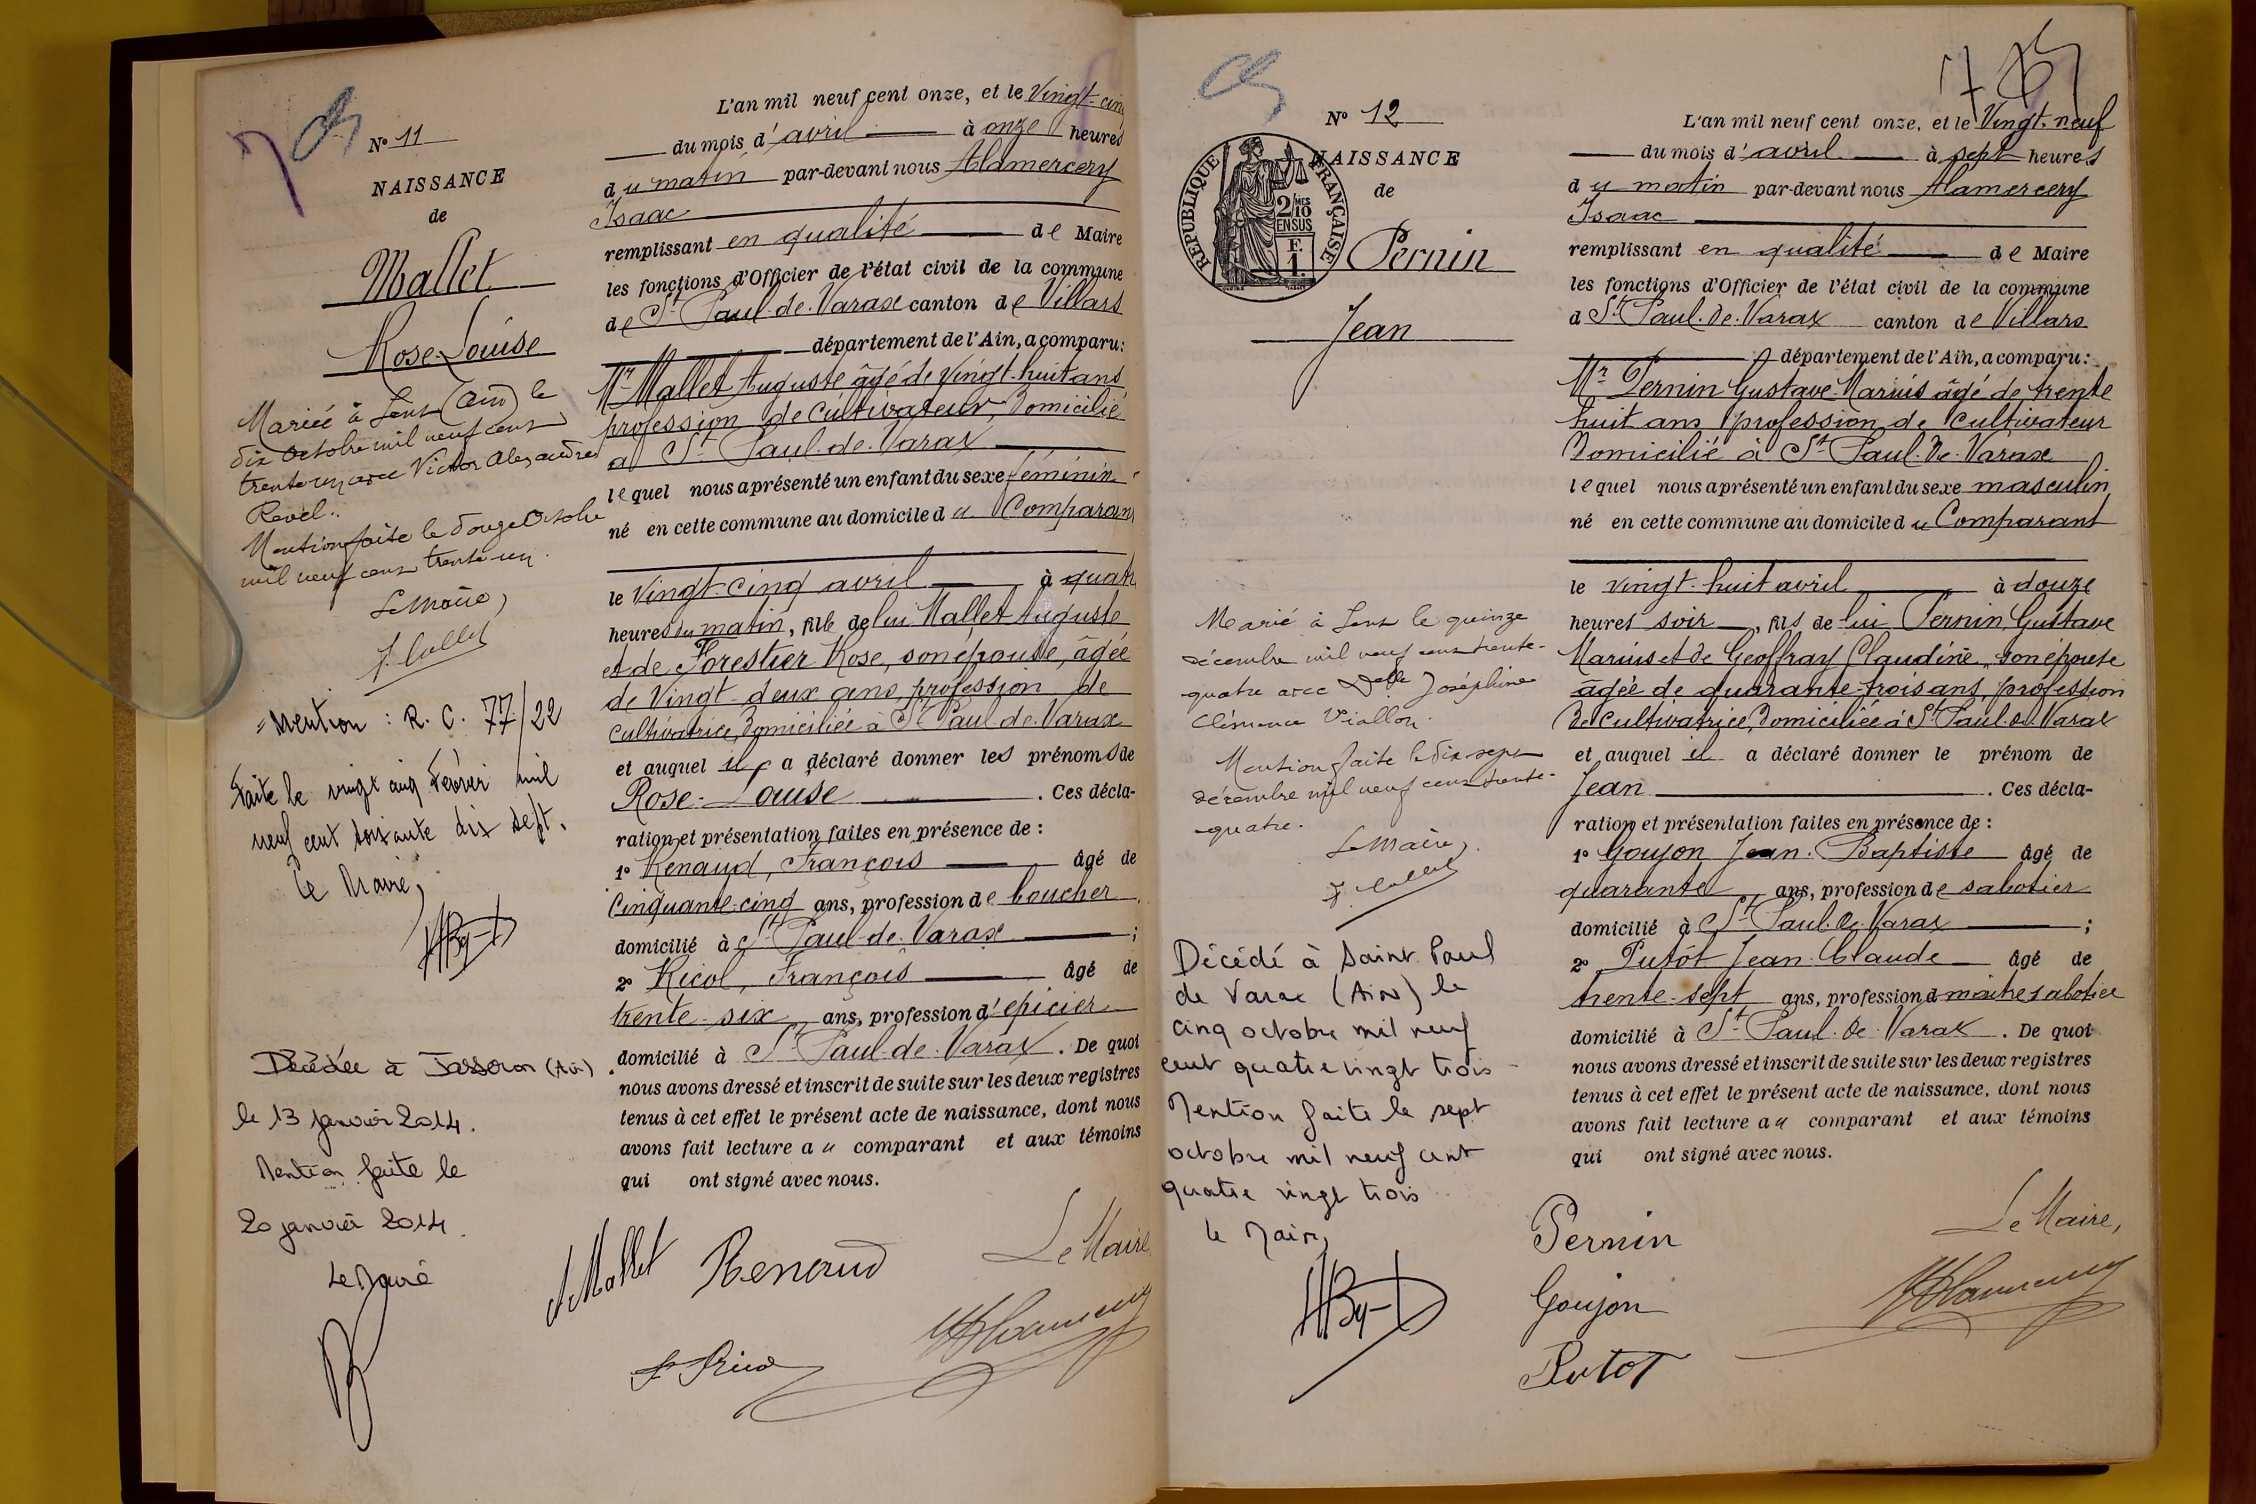 N° 11
NAISSANCE
de
Mallet
Rose-Louise
Mariée à (Ain) le
dix octobre mil neuf cent
trente un avec Victor Alexandre
Revel.
Mention faite le douze Octobre
mil neuf cent trente un.
Le Maire,
= Mention : R. C. 77/22
Faite le vingt cinq Février mil
neuf cent soixante dix sept.
Le Maire,
Décédée à Jasseron (Ain).
le 13 janvier 2014.
Mention faite le
20 janvier 2014.
Le Maire
L'an mil neuf cent onze, et le Vingt-cinq
du mois d'avril à onze heures
du matin par-devant nous Alamercery
Isaac
remplissant en qualité de Maire
les fonctions d'Officier de l'état civil de la commune
de St Paul-de-Varax canton de Villars
département de l'Ain, a comparu:
Mr Mallet Auguste âgé de vingt-huit ans
profession de cultivateur, Domicilié
à St Paul-de-Varax
lequel nous a présenté un enfant du sexe féminin
né en cette commune au domicile du Comparant
le vingt-cinq avril à quatre
heures du matin, fille de lui Mallet Auguste
et de Forestier Rose, son épouse, âgée
de Vingt-deux ans, profession de
cultivatrice, Domiciliée à St Paul-de-Varax
et auquel il a déclaré donner les prénoms de
Rose-Louise. Ces décla-
ration et présentation faites en présence de :
1° Renaud, François âgé de
Cinquante-cinq ans, profession de boucher
domicilié à St Paul-de-Varax ;
2° Ricol, François âgé de
trente-six ans, profession d'épicier
domicilié à St Paul-de-Varax. De quoi
nous avons dressé et inscrit de suite sur les deux registres
tenus à cet effet le présent acte de naissance, dont nous
avons fait lecture au comparant et aux témoins
qui ont signé avec nous.
Mallet Renaud Le Maire,
N° 12
NAISSANCE
de
RÉPUBLIQUE FRANÇAISE
2/10MES
EN SUS
F.
1.
Pernin
Jean
Marié à le quinze
décembre mil neuf cent trente-
quatre avec Delle Joséphine
Clémence Viallon.
Mention faite le dix sept
décembre mil neuf cent trente-
quatre.
Le Maire,
Décédé à Saint Paul
de Varax (Ain) le
cinq octobre mil neuf
cent quatre vingt trois
Mention faite le sept
octobre mil neuf cent
quatre vingt trois
le Maire,
L'an mil neuf cent onze, et le Vingt-neuf
du mois d'avril à sept heures
du matin par-devant nous Alamercery
Isaac
remplissant en qualité de Maire
les fonctions d'Officier de l'état civil de la commune
d St Paul-de-Varax canton de Villars
département de l'Ain, a comparu:
Mr Pernin Gustave Marius âgé de trente
huit ans, profession de cultivateur
Domicilié à St Paul-de-Varax
lequel nous a présenté un enfant du sexe masculin
né en cette commune au domicile du Comparant
le vingt-huit avril à douze
heures soir, fils de lui Pernin Gustave
Marius et de Geoffray Claudine, son épouse
âgée de quarante-trois ans, profession
de cultivatrice, Domiciliée à St Paul-de-Varax
et auquel il a déclaré donner le prénom de
Jean. Ces décla-
ration et présentation faites en présence de :
1° Goujon Jean-Baptiste âgé de
quarante ans, profession de sabotier
domicilié à St Paul-de-Varax ;
2° Putôt Jean-Claude âgé de
trente-sept ans, profession d maître sabotier
domicilié à St Paul-de-Varax. De quoi
nous avons dressé et inscrit de suite sur les deux registres
tenus à cet effet le présent acte de naissance, dont nous
avons fait lecture au comparant et aux témoins
qui ont signé avec nous.
Pernin Le Maire,
Goujon
Putot